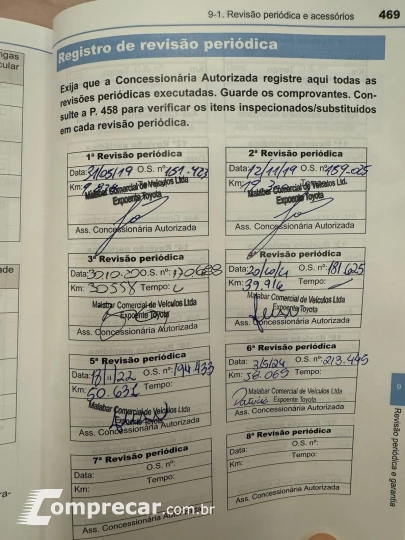 9-1. Revisão periódica e acessórios 469
Registro de revisão periódica
Exija que a Concessionária Autorizada registre aqui todas as
revisões periódicas executadas. Guarde os comprovantes. Con-
sulte a P. 458 para verificar os itens inspecionados/substituídos
em cada revisão periódica.
1ª Revisão periódica
Data: 31/05/19 O.S. nº: 151.423
Km:
Malabar Comercial de Veículos Ltda
Expoente Toyota
Ass. Concessionária Autorizada
2ª Revisão periódica
Data: 12/11/19 O.S. nº: 159.025
Km:
Malabar Comercial de Veículos Ltd.
Expoente Toyota
Ass. Concessionária Autorizada
3ª Revisão periódica
Data: O.S. nº:
Km: 30558 Tempo:
Malabar Comercial de Veículos Ltda
Expoente Toyota
Ass. Concessionária Autorizada
4ª Revisão periódica
Data: O.S. nº: 181625
Km: 39.916 Tempo:
Malabar Comercial de Veículos Ltda
Expoente Toyota
Ass. Concessionária Autorizada
5ª Revisão periódica
Data: O.S. nº: 194.433
Km: 50.631 Tempo:
Malabar Comercial de Veículos Ltda
Expoente Toyota
Ass. Concessionária Autorizada
6ª Revisão periódica
Data: 3/5/24 O.S. nº: 213.445
Km: Tempo:
Malabar Comercial de Veículos Ltda
Expoente Toyota
Ass. Concessionária Autorizada
7ª Revisão periódica
Data: O.S. nº:
Km: Tempo:
Ass. Concessionária Autorizada
8ª Revisão periódica
Data: O.S. nº:
Km: Tempo:
Ass. Concessionária Autorizada
9
Revisão periódica e garantia
Comprecar.com.br